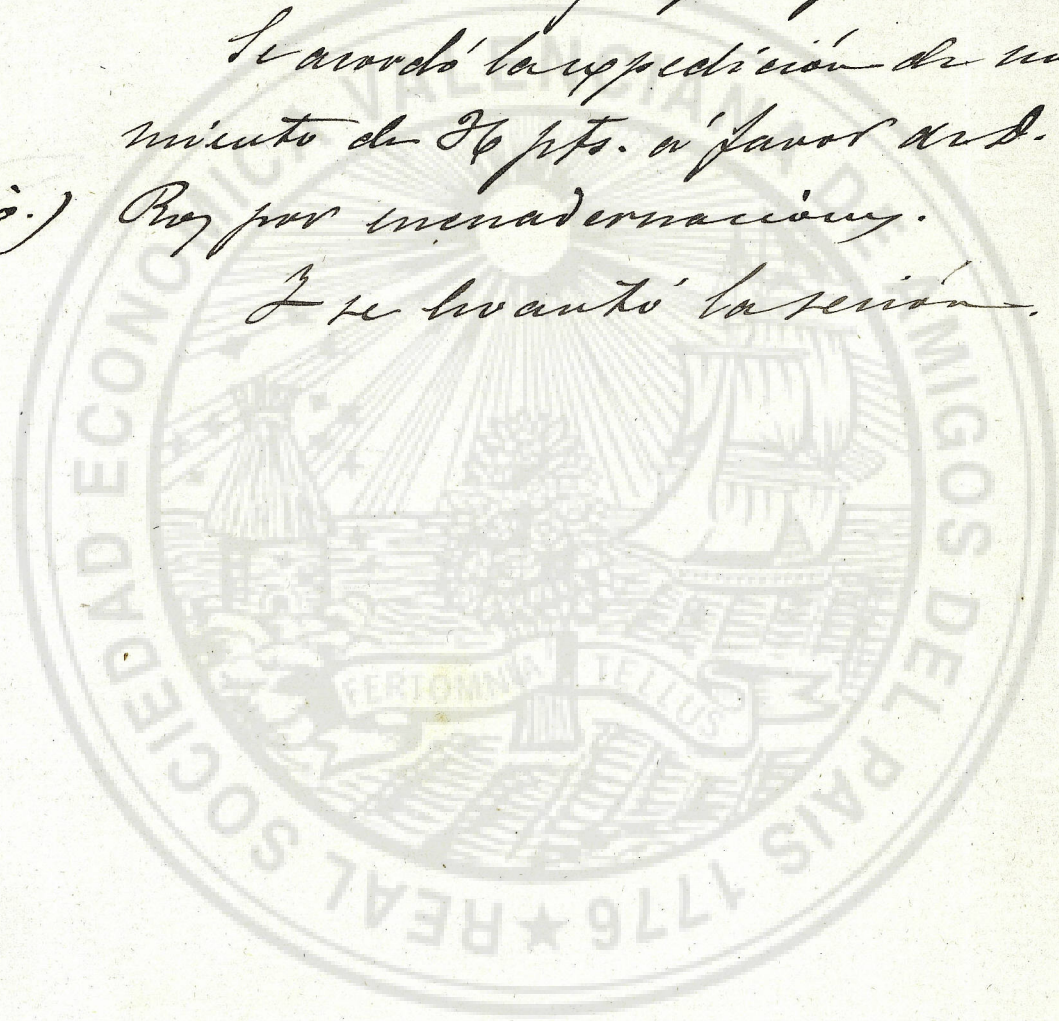 Se acordó la expedición de un
miento de 36 pts. á favor de D.
ó.) Roy por encuadernaciones.
Y se levantó la sesión.
REAL SOCIEDAD ECONOMICA VALENCIANA DE AMIGOS DEL PAIS 1776 ★
FERT OMNIA TELLUS